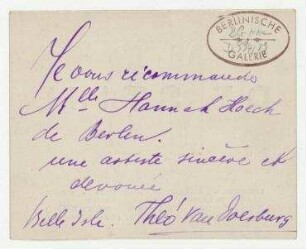 BERLINISCHE
GALERIE
Je vous recommande
Mlle Hannah Hoech
de Berlin.
une artiste sincère et
devouée
Belle Isle. Théo Van Doesburg